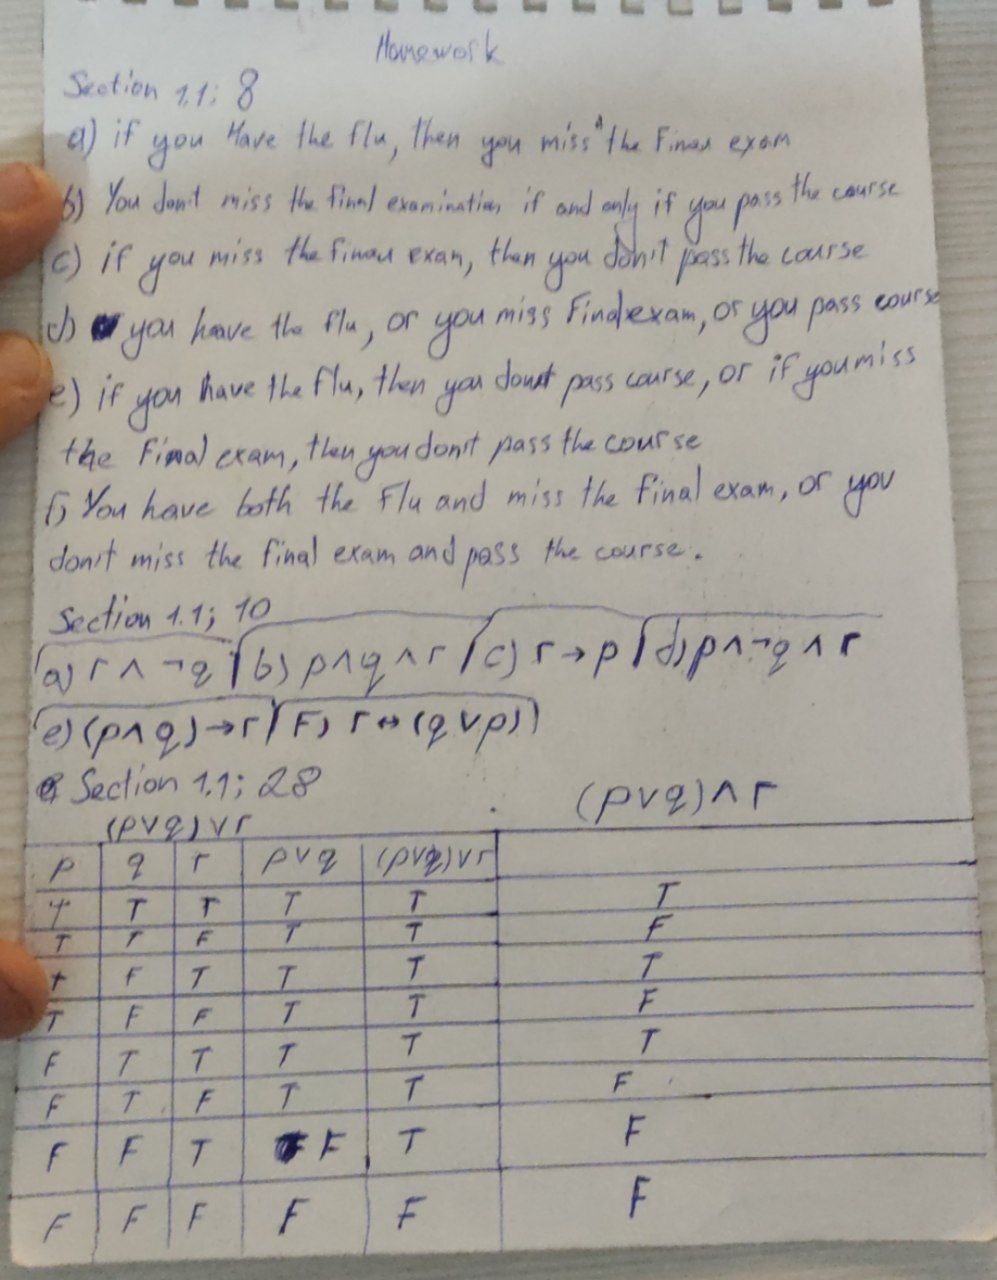 Homework
Section 1.1; 8
a) if you Have the flu, then you miss the Final exam
b) You don't miss the final examination if and only if you pass the course
c) if you miss the final exam, then you don't pass the course
d) you have the flu, or you miss Final exam, or you pass course
e) if you have the flu, then you don't pass course, or if you miss
the final exam, then you don't pass the course
f) You have both the Flu and miss the final exam, or you
don't miss the final exam and pass the course.
Section 1.1; 10
a) r ∧ ¬q b) p ∧ q ∧ r c) r → p d) p ∧ ¬q ∧ r
e) (p ∧ q) → r F) r ↔ (q ∨ p)
Section 1.1; 28
(p ∨ q) ∨ r (p ∨ q) ∧ r
p q r p ∨ q (p ∨ q) ∨ r
T T T T T T
T T F T T F
T F T T T T
T F F T T F
F T T T T T
F T F T T F
F F T F T F
F F F F F F